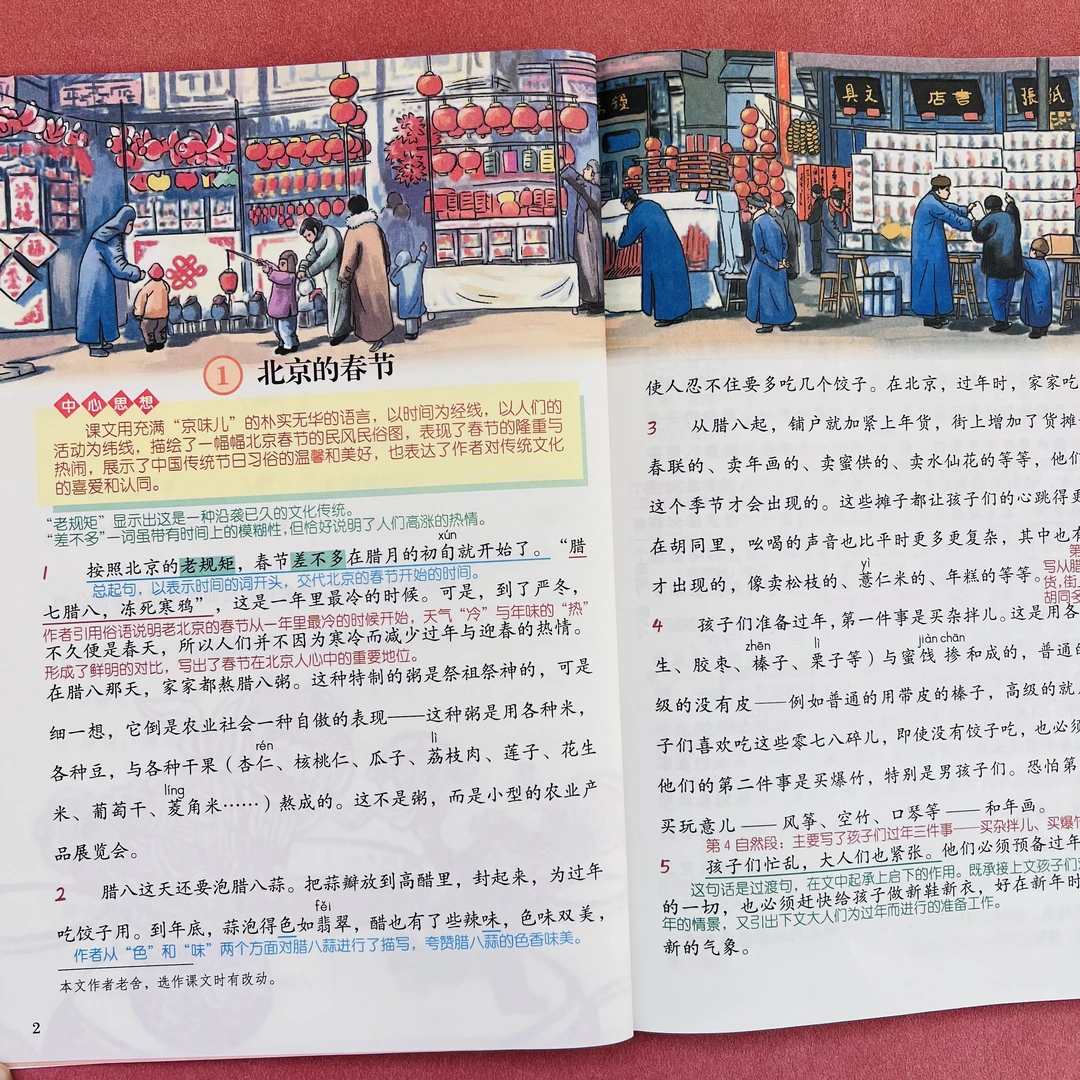 文具
書店
紙張
福
1 北京的春节
中心思想
课文用充满“京味儿”的朴实无华的语言，以时间为经线，以人们的
活动为纬线，描绘了一幅幅北京春节的民风民俗图，表现了春节的隆重与
热闹，展示了中国传统节日习俗的温馨和美好，也表达了作者对传统文化
的喜爱和认同。
“老规矩”显示出这是一种沿袭已久的文化传统。
“差不多”一词虽带有时间上的模糊性，但恰好说明了人们高涨的热情。
xún
1 按照北京的老规矩，春节差不多在腊月的初旬就开始了。“腊
总起句，以表示时间的词开头，交代北京的春节开始的时间。
七腊八，冻死寒鸦”，这是一年里最冷的时候。可是，到了严冬，
作者引用俗语说明老北京的春节从一年里最冷的时候开始，天气“冷”与年味的“热”
不久便是春天，所以人们并不因为寒冷而减少过年与迎春的热情。
形成了鲜明的对比，写出了春节在北京人心中的重要地位。
在腊八那天，家家都熬腊八粥。这种特制的粥是祭祖祭神的，可是
细一想，它倒是农业社会一种自傲的表现——这种粥是用各种米，
rén lì
各种豆，与各种干果（杏仁、核桃仁、瓜子、荔枝肉、莲子、花生
líng
米、葡萄干、菱角米……）熬成的。这不是粥，而是小型的农业产
品展览会。
2 腊八这天还要泡腊八蒜。把蒜瓣放到高醋里，封起来，为过年
fěi
吃饺子用。到年底，蒜泡得色如翡翠，醋也有了些辣味，色味双美，
作者从“色”和“味”两个方面对腊八蒜进行了描写，夸赞腊八蒜的色香味美。
本文作者老舍，选作课文时有改动。
2
使人忍不住要多吃几个饺子。在北京，过年时，家家吃
3 从腊八起，铺户就加紧上年货，街上增加了货摊
春联的、卖年画的、卖蜜供的、卖水仙花的等等，他们
这个季节才会出现的。这些摊子都让孩子们的心跳得更
在胡同里，吆喝的声音也比平时更多更复杂，其中也有
第
yì
才出现的，像卖松枝的、薏仁米的、年糕的等等。
写从腊
货，街
胡同多
4 孩子们准备过年，第一件事是买杂拌儿。这是用各
zhēn lì jiàn chān
生、胶枣、榛子、栗子等）与蜜饯掺和成的，普通的
级的没有皮——例如普通的用带皮的榛子，高级的就
子们喜欢吃这些零七八碎儿，即使没有饺子吃，也必须
他们的第二件事是买爆竹，特别是男孩子们。恐怕第
买玩意儿——风筝、空竹、口琴等——和年画。
第4自然段：主要写了孩子们过年三件事——买杂拌儿、买爆竹
5 孩子们忙乱，大人们也紧张。他们必须预备过年
这句话是过渡句，在文中起承上启下的作用。既承接上文孩子们
的一切，也必须赶快给孩子做新鞋新衣，好在新年时
年的情景，又引出下文大人们为过年而进行的准备工作。
新的气象。